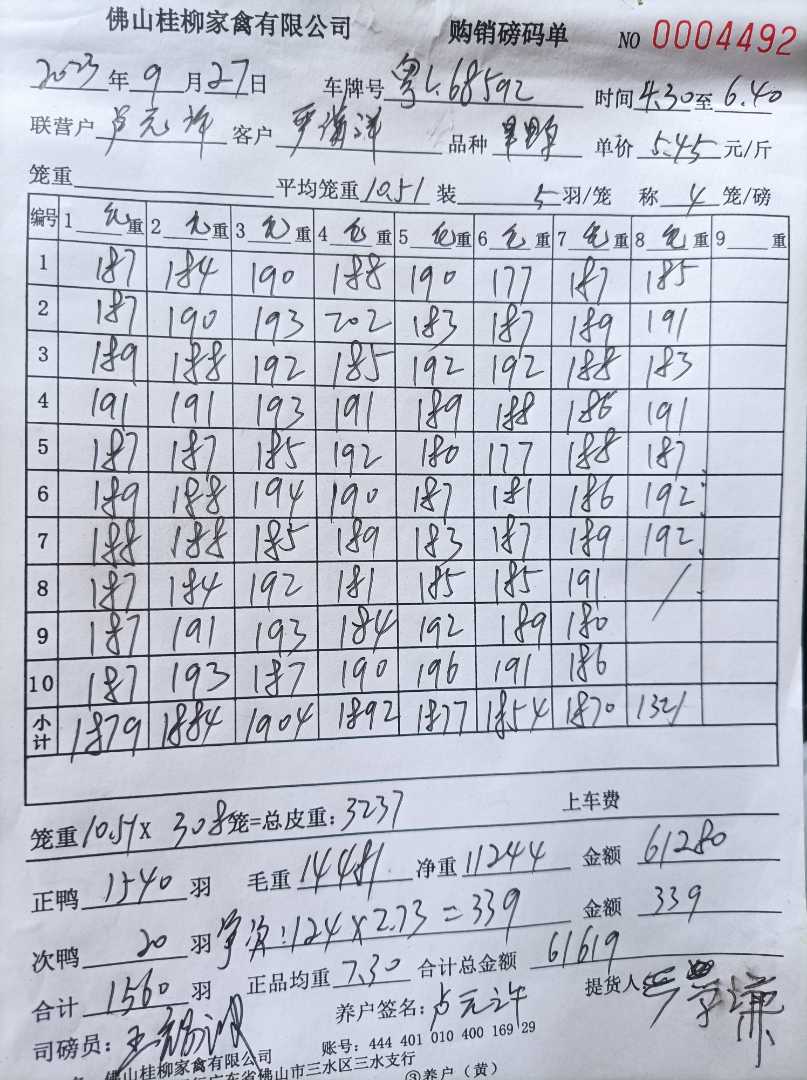 佛山桂柳家禽有限公司 购销磅码单 NO 0004492
2023年9月27日 车牌号 粤L.68592 时间4.30至6.40
联营户 卢元许 客户 品种 单价 5.45 元/斤
笼重 平均笼重10.51 装 5 羽/笼 称 4 笼/磅
编号 1 毛重 2 毛重 3 毛重 4 毛重 5 毛重 6 毛重 7 毛重 8 毛重 9 重
1 187 184 190 188 190 177 187 185
2 187 190 193 202 183 187 189 191
3 189 188 192 185 192 192 188 183
4 191 191 193 191 189 188 186 191
5 187 187 185 192 180 177 188 187
6 189 188 194 190 187 181 186 192
7 188 188 185 189 183 187 189 192
8 187 184 192 181 185 185 191 /
9 187 191 193 184 192 189 180
10 187 193 187 190 196 191 186
小计 1879 1884 1904 1892 1877 1854 1870 1321
上车费
笼重10.51X 308笼=总皮重:3237
正鸭 1540 羽 毛重 14481 净重 11244 金额 61280
次鸭 20 羽 次:124×2.73=339 金额 339
合计 1560 羽 正品均重 7.30 合计总金额 61619
司磅员: 养户签名:卢元许 提货人
佛山桂柳家禽有限公司 账号:444 401 010 400 169 29
广东省佛山市三水区三水支行
③养户(黄)